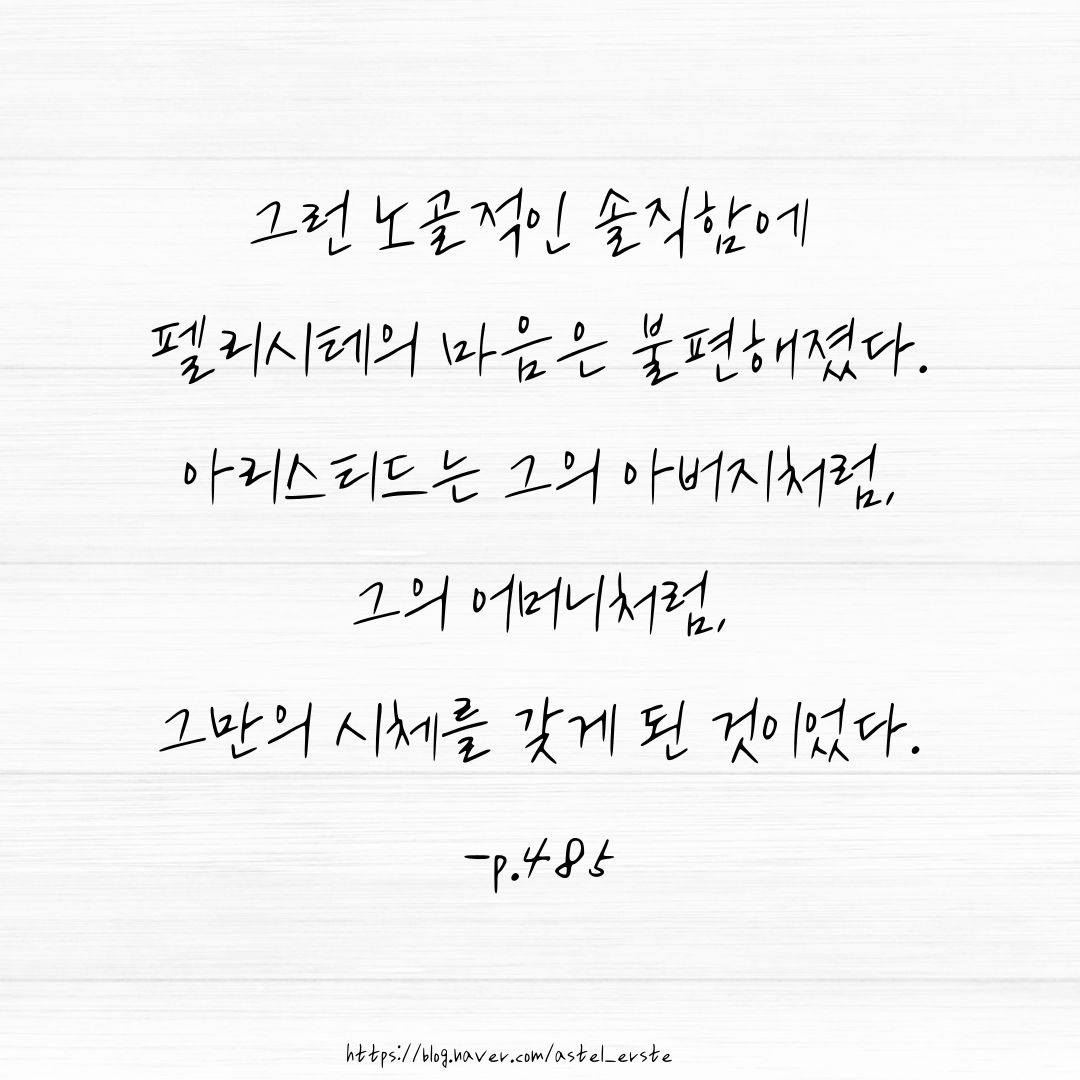 그런 노골적인 솔직함에
펠리시테의 마음은 불편해졌다.
아리스티드는 그의 아버지처럼,
그의 어머니처럼,
그만의 시체를 갖게 된 것이었다.
-p.485
https://blog.naver.com/astel_erste